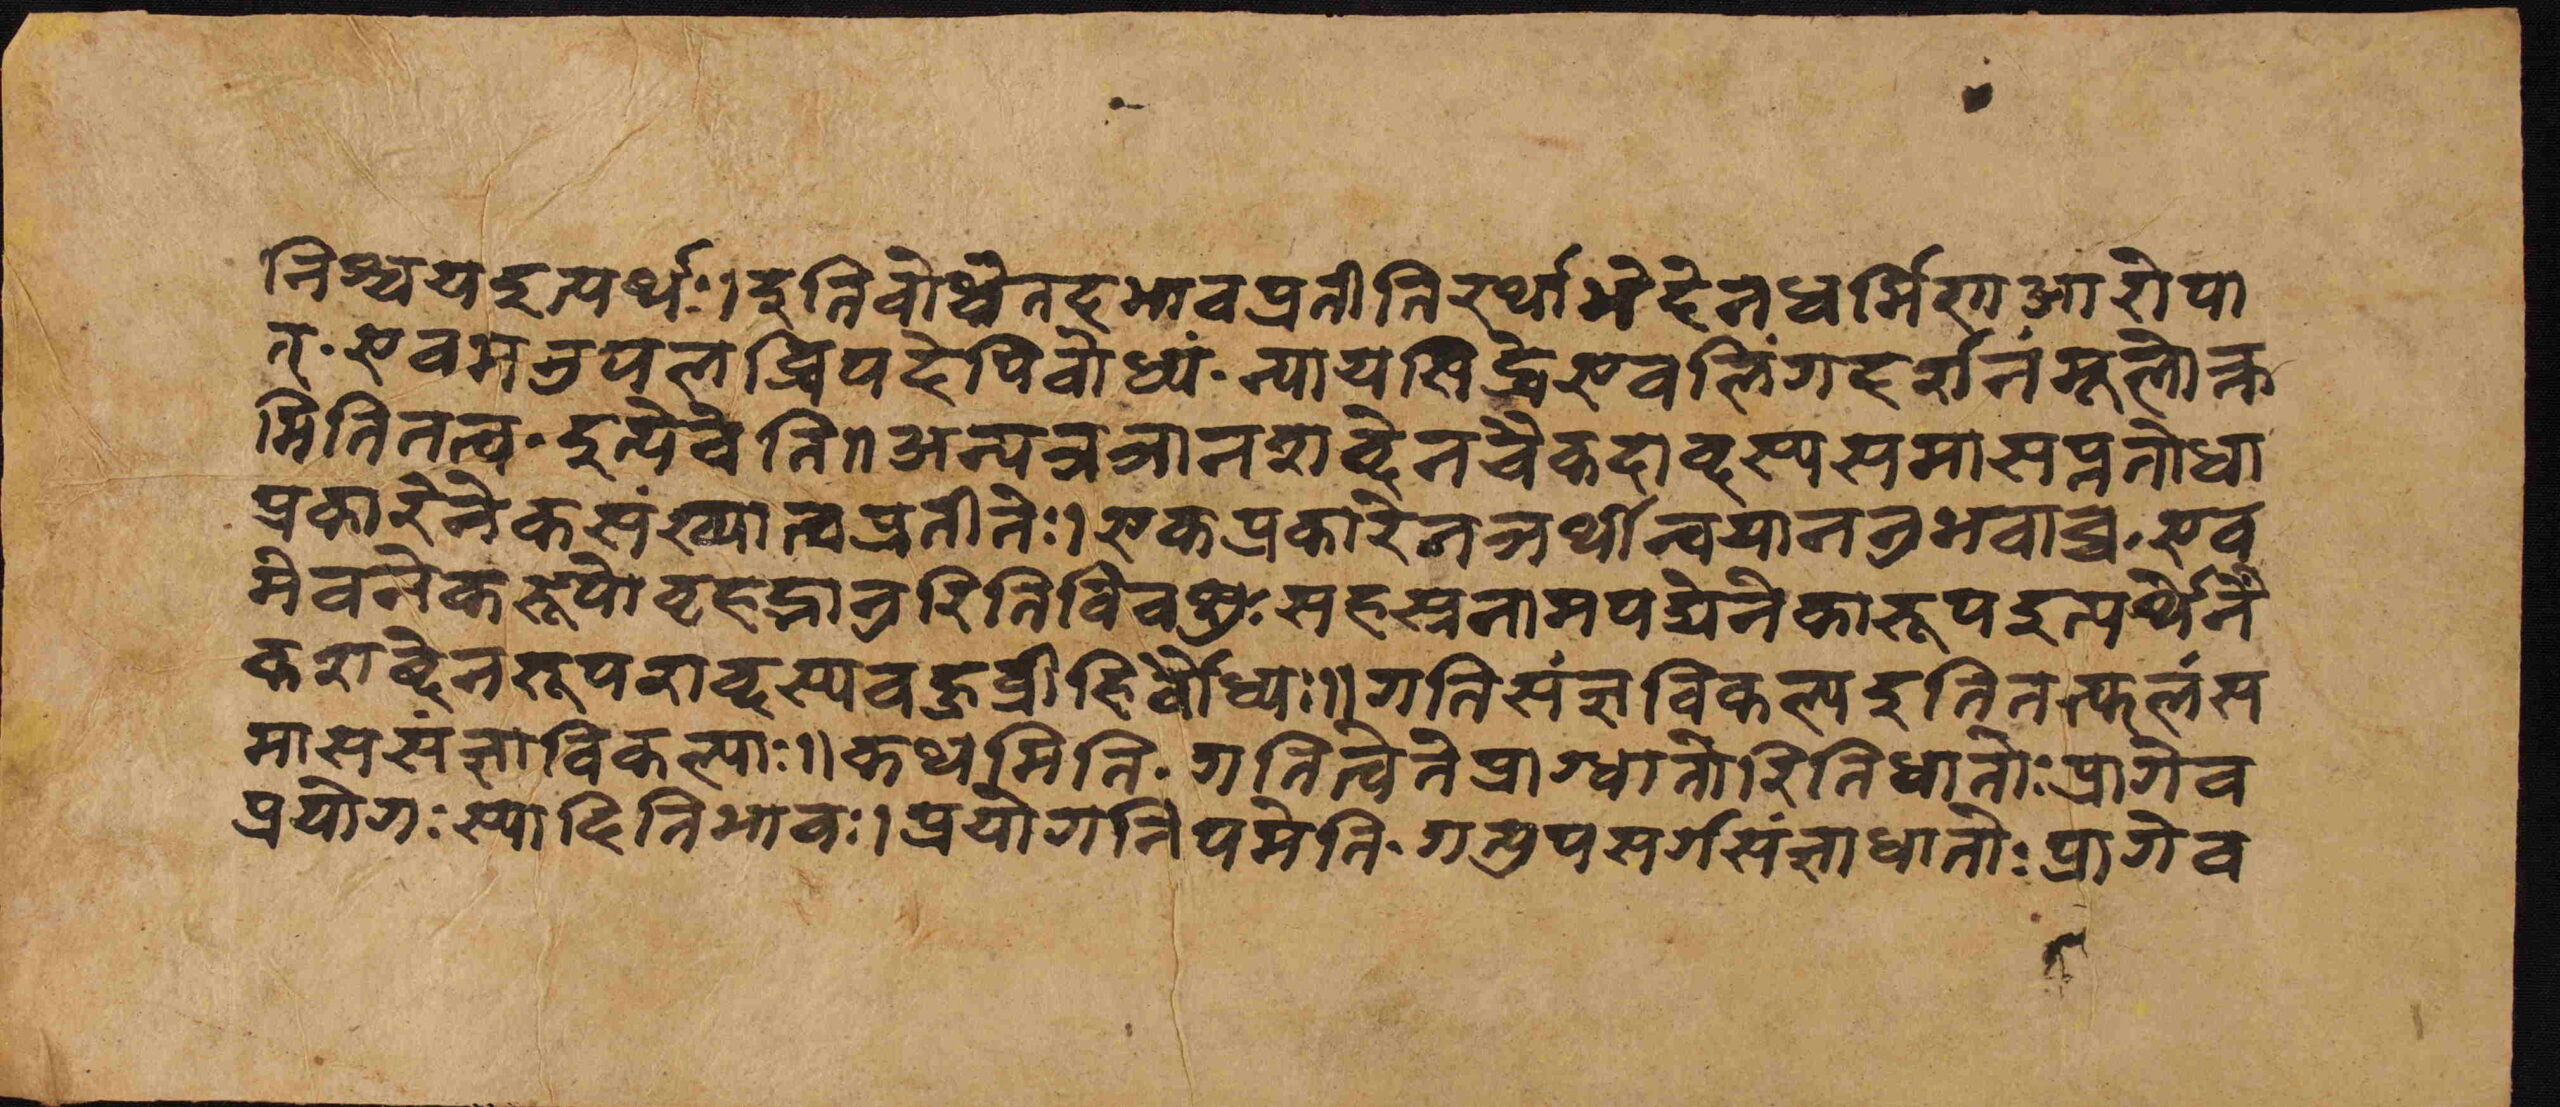 निश्चयइत्यर्थः।इतिबोध्येतदभावप्रतीतिरर्थाभेदेनधर्मिणाआरोपा
त्·एवमनुपलब्धिपदेपिबोध्यं·न्यायसिद्धेएवलिंगदर्शनंमूलोक्त
मितितत्व·इत्येवेति॥अन्यत्रञानशब्देनचैकदाब्स्यसमासप्नतोधा
प्रकारेनेकसंख्यात्वप्रतीतेः।एकप्रकारेनञर्थान्वयाननुभवाच्च·एव
मेवनेकरूपोबृहद्भानुरितिविवक्षुःसहस्रनामपद्येनेकारूपइत्यर्थेने
कशब्देनरूपशब्स्यवहुव्रीहिर्वोध्यः॥गतिसंज्ञविकल्पइतितत्फलंस
माससंज्ञाविकल्पाः॥कथमिति·गतित्वेतेप्राग्धातोरितिधातोःप्रागेव
प्रयोगःस्यादितिभावः।प्रयोगनिपमेति·गत्युपसर्गसंज्ञाधातोःप्रागेव